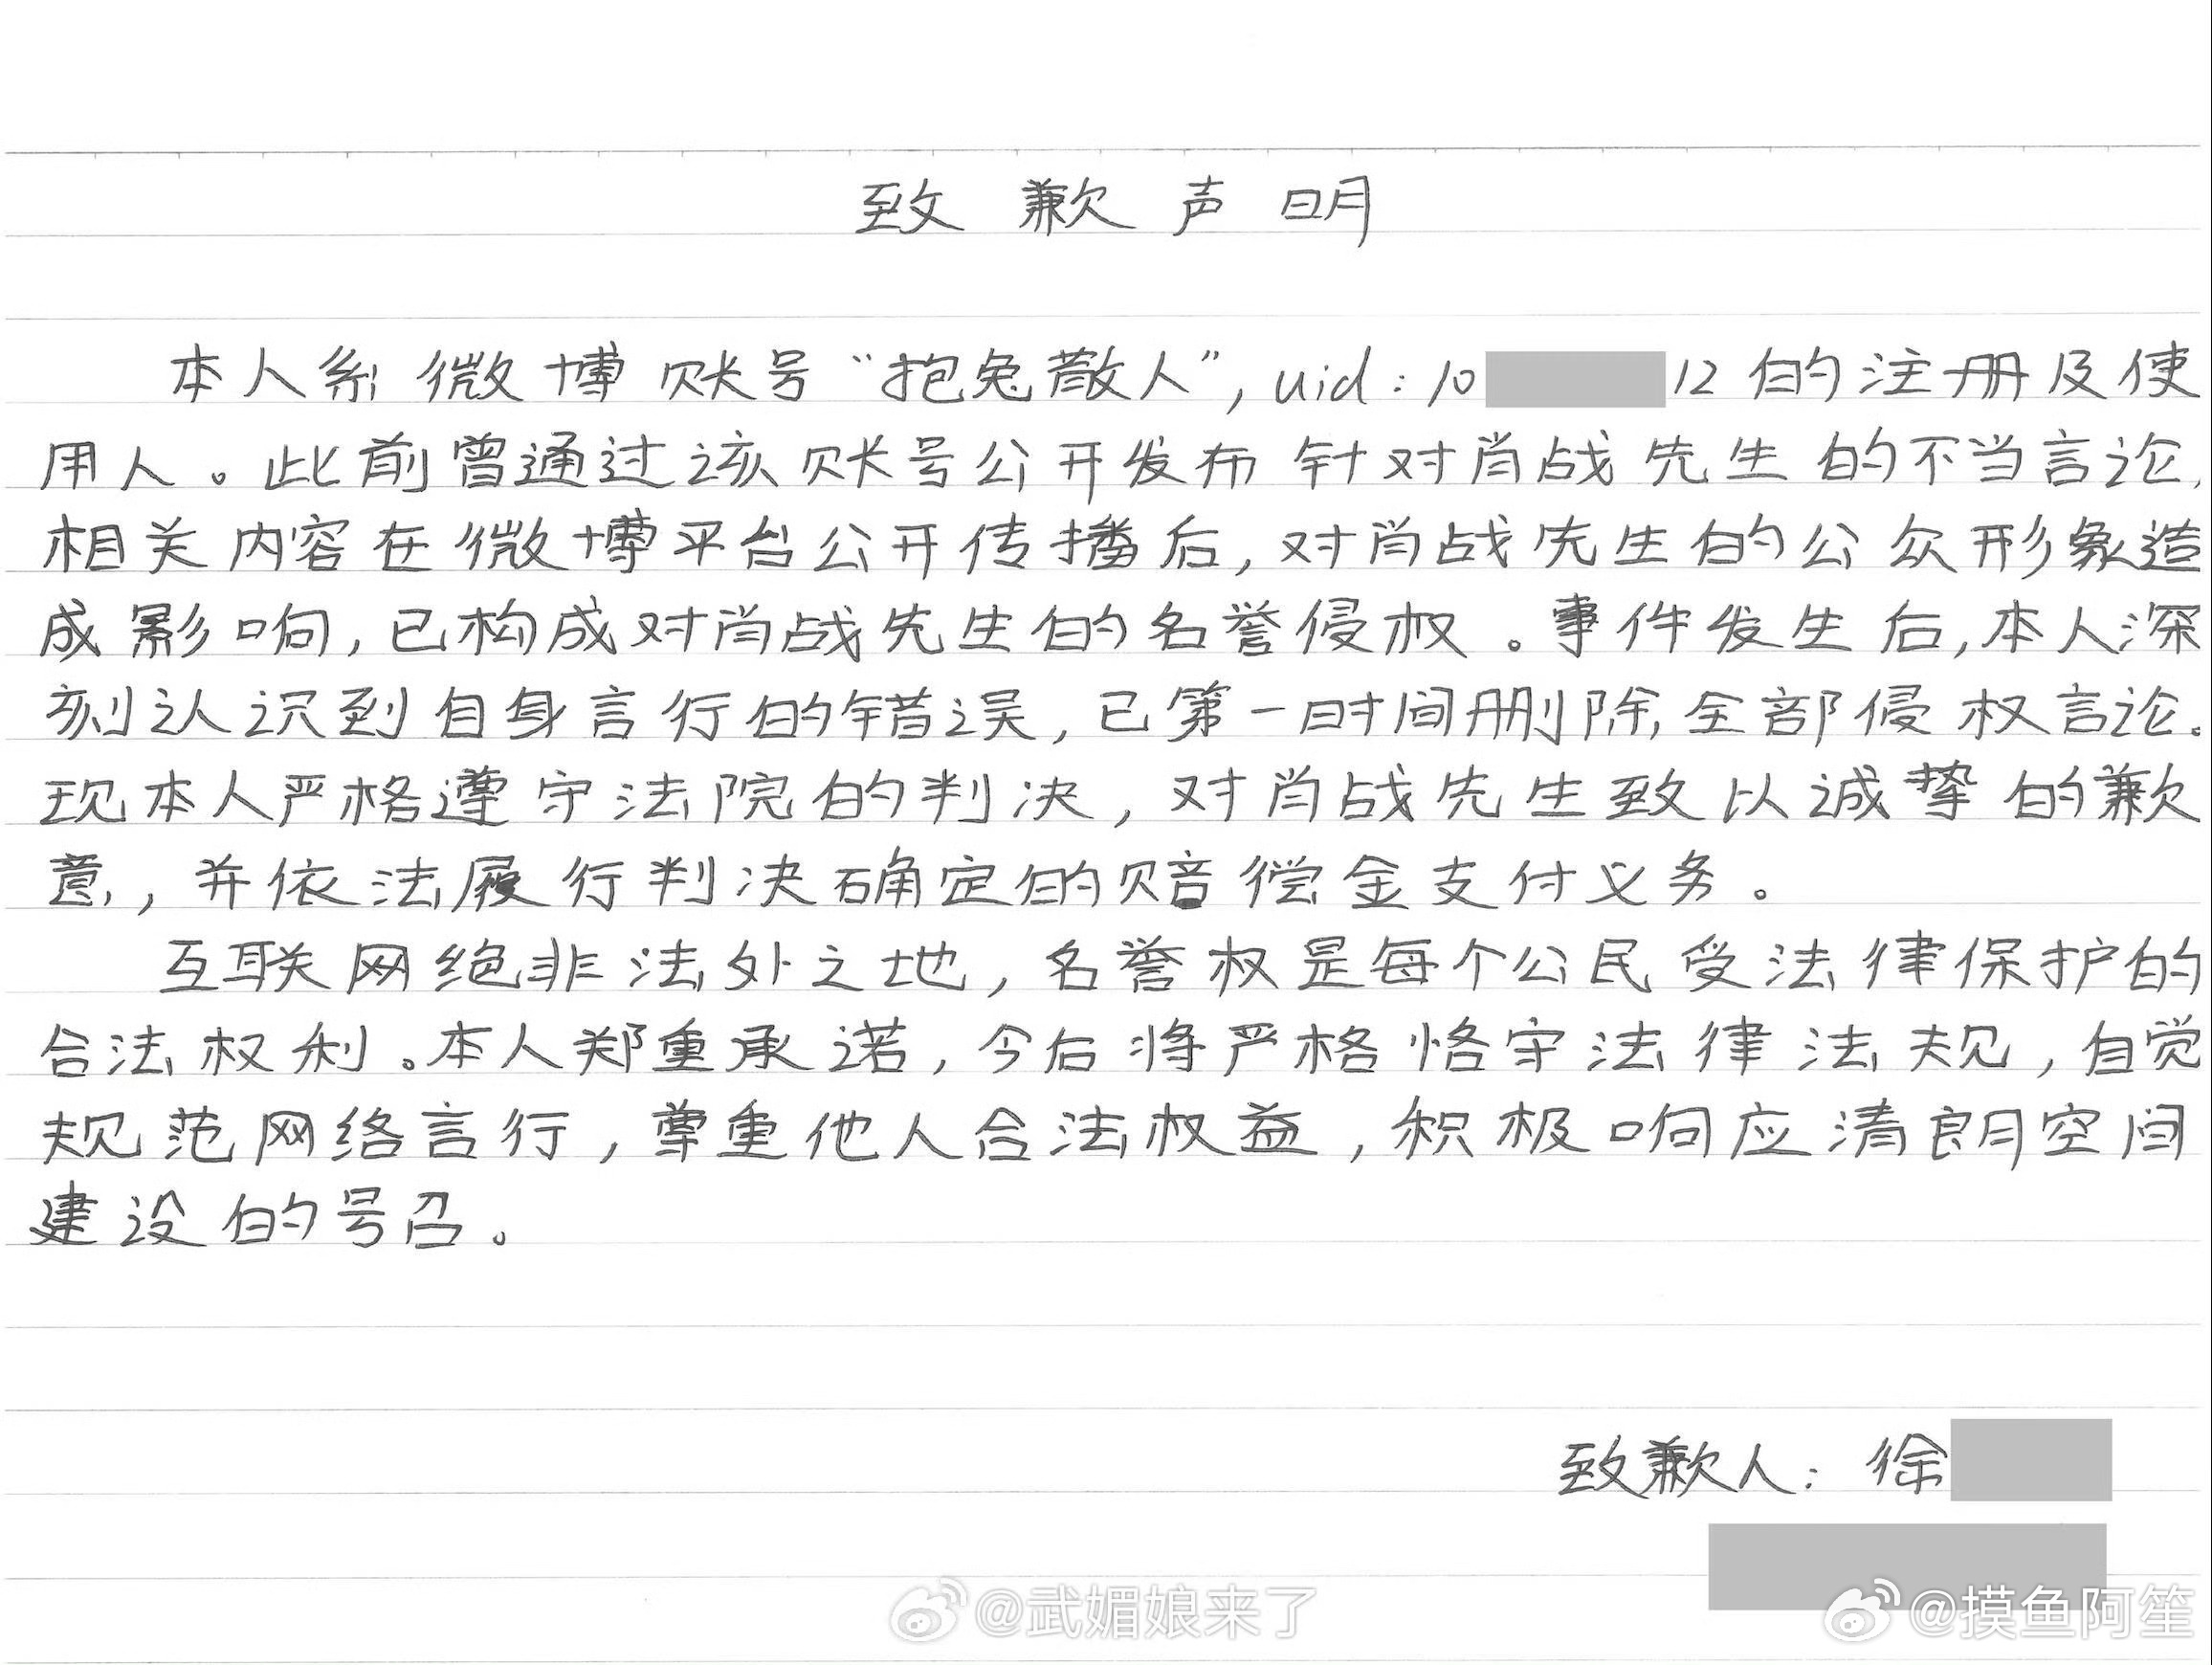 致歉声明
本人系微博账号“抱兔散人”, uid: 10 12的注册及使
用人。此前曾通过该账号公开发布针对肖战先生的不当言论,
相关内容在微博平台公开传播后,对肖战先生的公众形象造
成影响,已构成对肖战先生的名誉侵权。事件发生后,本人深
刻认识到自身言行的错误,已第一时间删除全部侵权言论。
现本人严格遵守法院的判决,对肖战先生致以诚挚的歉
意,并依法履行判决确定的赔偿金支付义务。
互联网绝非法外之地,名誉权是每个公民受法律保护的
合法权利。本人郑重承诺,今后将严格恪守法律法规,自觉
规范网络言行,尊重他人合法权益,积极响应清朗空间
建设的号召。
致歉人: 徐
@武媚娘来了
@摸鱼阿笙